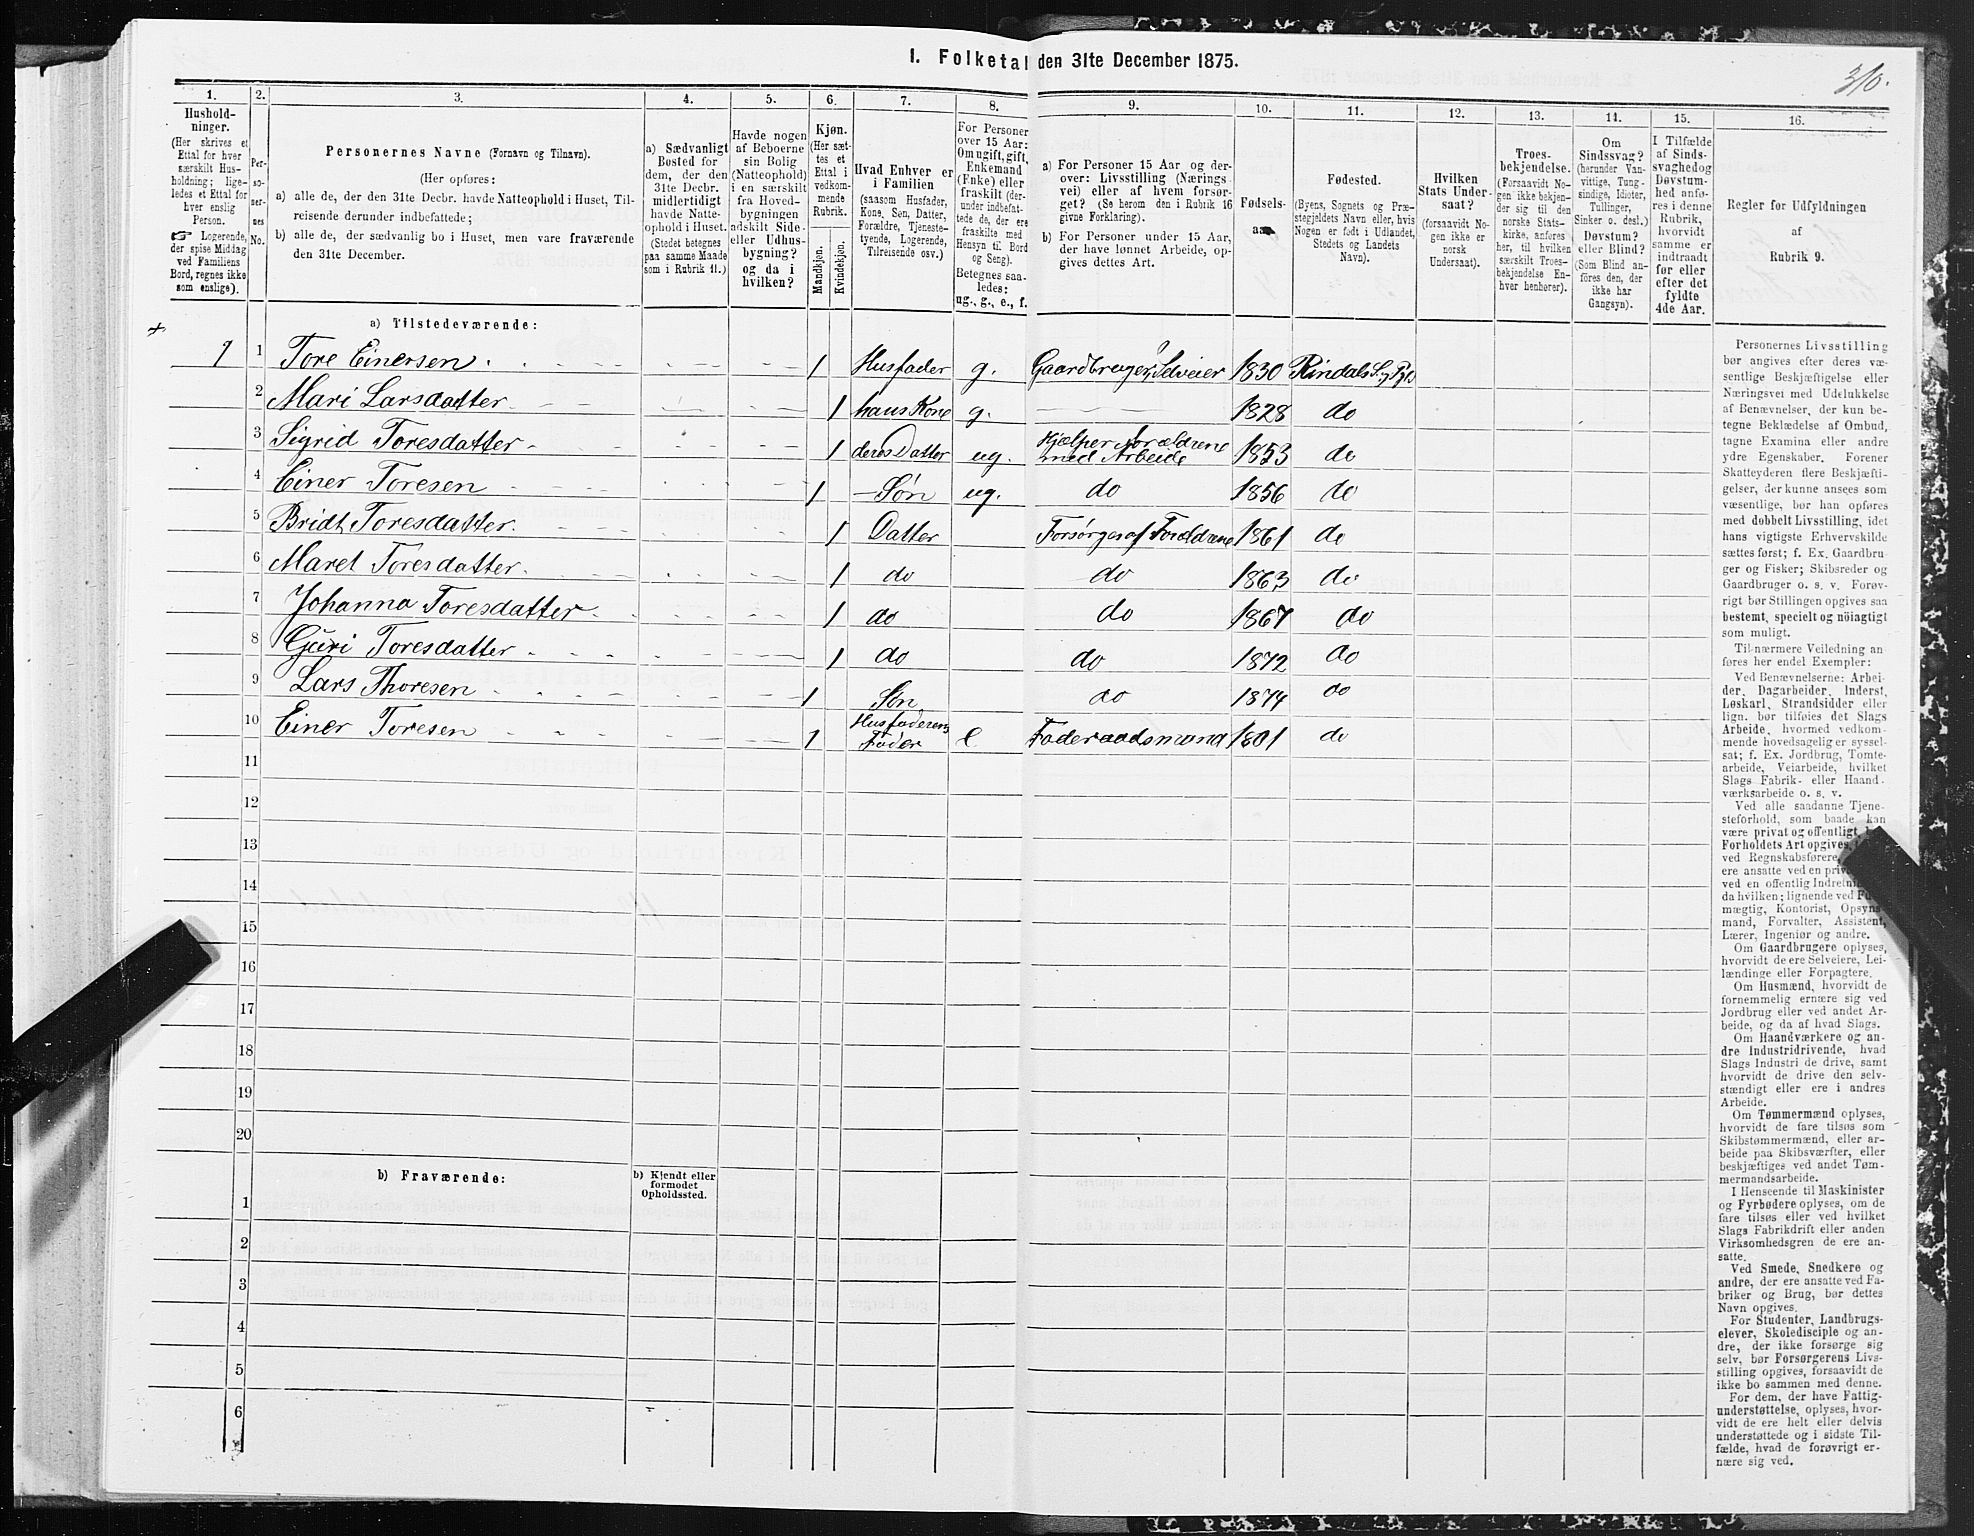 1. Folketal den 31te December 1875.
310.
1.
2.
3.
4.
5.
6.
7.
8.
9.
10.
11.
12.
13.
14.
15.
16.
Husholdninger.
(Her skrives et
Ettal for hver
særskilt Husholdning; ligeledes et Ettal for
hver enslig
Person.
☞ Logerende,
der spise Middag
ved Familiens
Bord, regnes ikke
som enslige).
Personernes No.
Personernes Navne (Fornavn og Tilnavn).
(Her opføres:
a) alle de, der den 31te Decbr. havde Natteophold i Huset, Tilreisende derunder indbefattede;
b) alle de, der sædvanlig bo i Huset, men vare fraværende
den 31te December.
a) Sædvanligt
Bosted for
dem, der den
31te Decbr.
midlertidigt
havde Natteophold i Huset.
(Stedet betegnes
paa samme Maade
som i Rubrik 11.)
Havde nogen
af Beboerne
sin Bolig
(Natteophold)
i en særskilt
fra Hovedbygningen
adskilt Side-
eller Udhusbygning?
og da i
hvilken?
Kjøn.
(Her sættes et
Ettal i
vedkommende
Rubrik.
Mandkjøn.
Kvindekjøn.
Hvad Enhver er
i Familien
(saasom Husfader,
Kone, Søn, Datter,
Forældre, Tjenestetyende, Logerende,
Tilreisende osv.)
For Personer
over 15 Aar:
Om ugift, gift,
Enkemand
(Enke) eller
fraskilt (derunder indbefattede de, der ere
fraskilte med
Hensyn til Bord
og Seng).
Betegnes saaledes:
ug., g., e., f.
a) For Personer 15 Aar og derover: Livsstilling (Næringsvei) eller af hvem forsørget? (Se herom den i Rubrik 16
givne Forklaring).
b) For Personer under 15 Aar,
der have lønnet Arbeide, opgives dettes Art.
Fødselsaar.
Fødested.
(Byens, Sognets og Præstegjeldets Navn eller, hvis
Nogen er født i Udlandet,
Stedets og Landets
Navn).
Hvilken
Stats Undersaat?
(forsaavidt Nogen ikke er
norsk
Undersaat).
Troesbekjendelse.
(Forsaavidt Nogen ikke bekjender sig til den
norske Statskirke, anføres
her, til hvilken
særskilt Troesbekjendelse Enhver henhører).
Om
Sindssvag?
(herunder Vanvittige, Tungsindige, Idioter,
Tullinger,
Sinker o. desl.)
Døvstum?
eller Blind?
(Som Blind anføres den, der
ikke har
Gangsyn).
I Tilfælde
af Sindssvaghed og
Døvstumhed anføres i denne
Rubrik,
hvorvidt
samme er
indtraadt
før eller
efter det
fyldte
4de Aar.
Regler for Udfyldningen
af
Rubrik 9.
a) Tilstedeværende:
1 1 Tore Einersen 1 Husfader g. Gaardbruger, Selveier 1830 Rindals S. Pgl
2 Mari Larsdatter 1 hans Kone g. 1828 do
3 Sigrid Toresdatter 1 deres Datter ug. Hjælper Forældrene med Arbeide 1853 do
4 Einer Toresen 1 Søn ug. do 1856 do
5 Bridt Toresdatter 1 Datter Forsørges af Foreldrene 1861 do
6 Maret Toresdatter 1 do do 1863 do
7 Johanna Toresdatter 1 do do 1867 do
8 Guri Toresdatter 1 do do 1872 do
9 Lars Thoresen 1 Søn do 1874 do
10 Einer Toresen 1 Husfaderens Fader e Foderaadsmand 1801 do
11
12
13
14
15
16
17
18
19
20
b) Fraværende:
b) Kjendt eller
formodet
Opholdssted.
1
2
3
4
5
6
Personernes Livsstilling
bør angives efter deres væsentlige Beskjæftigelse eller
Næringsvei med Udelukkelse
af Benævnelser, der kun betegne Beklædelse af Ombud,
tagne Examina eller andre
ydre Egenskaber. Forener
Skatteyderen flere Beskjæftigelser, der kunne ansees som
væsentlige, bør han opføres
med dobbelt Livsstilling, idet
hans vigtigste Erhvervskilde
sættes først; f. Ex. Gaardbruger og Fisker; Skibsreder og
Gaardbruger o. s. v. Forøvrigt bør Stillingen opgives saa
bestemt, specielt og nöiagtigt
som muligt.
Til nærmere Veiledning anføres her endel Exempler:
Ved Benævnelserne: Arbeider, Dagarbeider, Inderst,
Løskarl, Strandsidder eller
lign. bør tilføies det Slags
Arbeide, hvormed vedkommende hovedsagelig er sysselsat; f. Ex. Jordbrug, Tomtearbeide, Veiarbeide, hvilket
Slags Fabrik- eller Haandværksarbeide o. s. v.
Ved alle saadanne Tjenesteforhold, som baade kan
være privat og offentligt,
Forholdets Art opgives,
ved Regnskabsførere,
ere ansatte ved en
ved en offentlig
da hvilken; lignende ved
mægtig, Kontorist,
mand, Forvalter, Assistent,
Lærer, Ingeniør og andre.
Om Gaardbrugere oplyses,
hvorvidt de ere Selveiere, Leilændinge eller Forpagtere.
Om Husmænd, hvorvidt de
fornemmelig ernære sig ved
Jordbrug eller ved andet Arbeide, og da af hvad Slags.
Om Haandværkere og andre Industridrivende, hvad
Slags Industri de drive, samt
hvorvidt de drive den selvstændigt eller ere i andres
Arbeide.
Om Tømmermænd oplyses,
hvorvidt de fare tilsøs som
Skibstømmermænd, eller arbeide paa Skibsværfter, eller
beskjæftiges ved andet Tømmermandsarbeide.
I Henseende til Maskinister
og Fyrbødere oplyses, om de
fare tilsøs eller ved hvilket
Slags Fabrikdrift eller anden
Virksomhedsgren de ere ansatte.
Ved Smede, Snedkere og
andre, der ere ansatte ved Fabriker og Brug, bør dettes
Navn opgives.
For Studenter, Landbrugselever, Skoledisciple og andre, der ikke forsørge sig
selv, bør Forsørgerens Livsstilling opgives, forsaavidt de
ikke bo sammen med denne.
For dem, der have Fattigunderstøttelse, oplyses, hvorvidt de ere helt eller delvis
understøttede og i sidste Tilfælde, hvad de forøvrigt ernære sig ved.